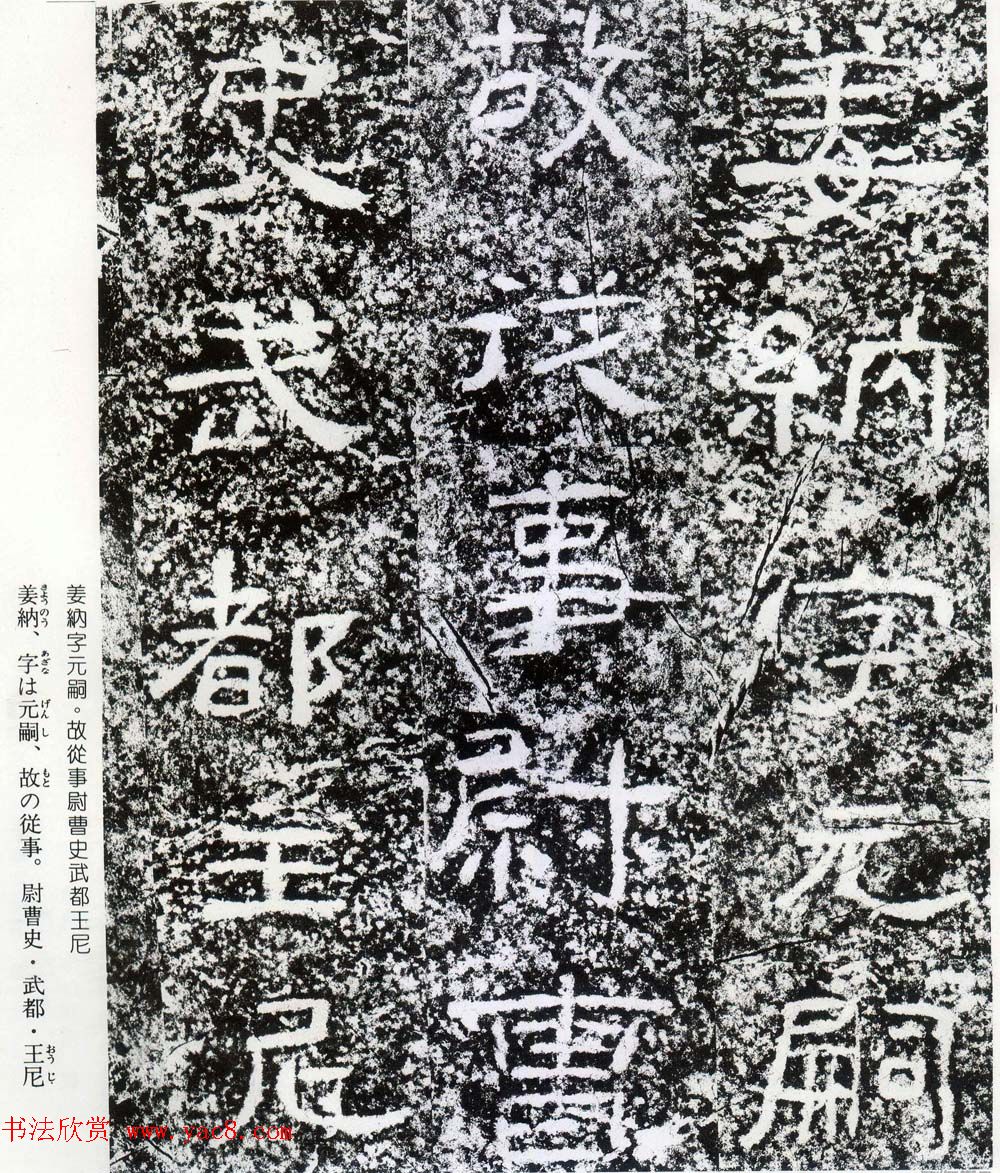 姜納字元嗣
故從事尉曹
史武都王尼
姜納字元嗣。故從事尉曹史武都王尼
姜納、字は元嗣、故の従事。尉曹史・武都・王尼
きょうのう あざな げんし もと おうじ
书法欣赏 www.yac8.com